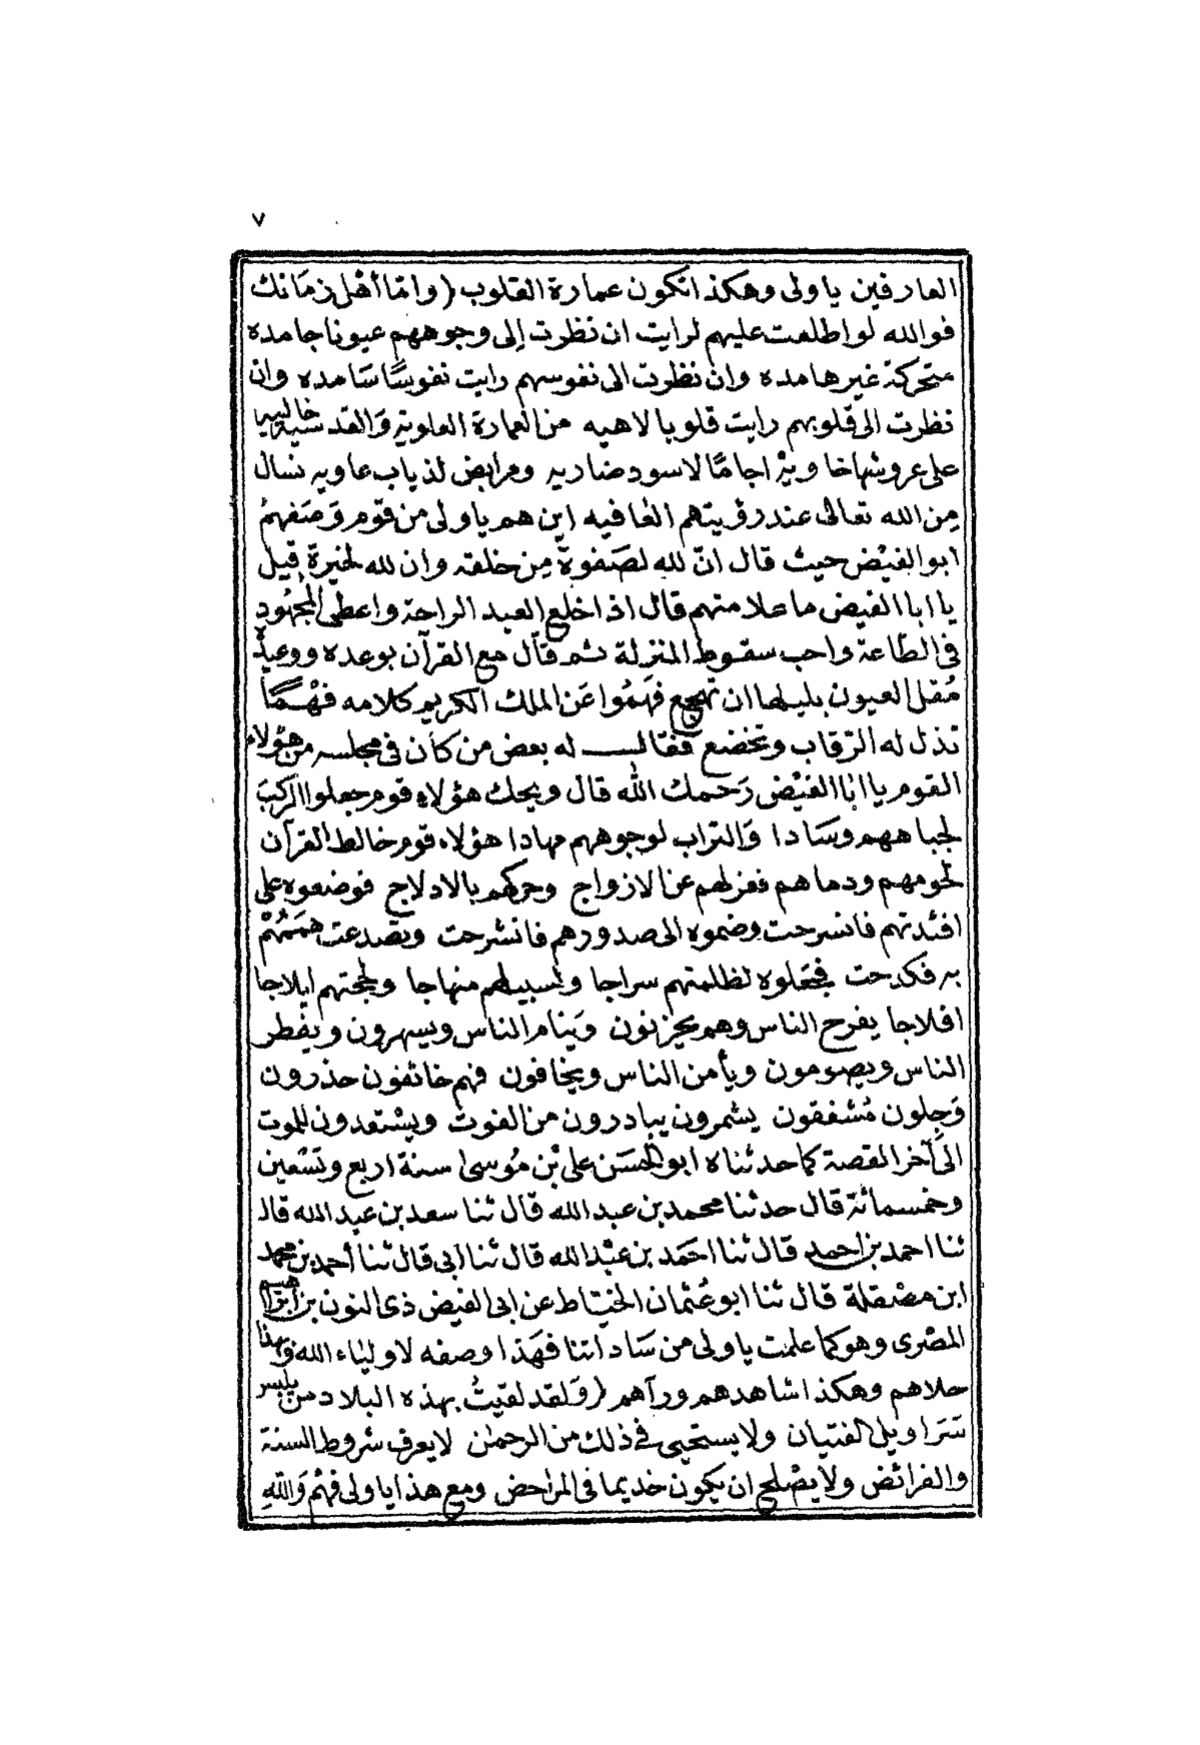 ٧
العارفين يا ولى وهكذا تكون عمارة القلوب (وامّا أهْل زمَانك
فوالله لو اطلعت عليهم لرايت ان نظرت إلى وجوههم عيونا جامده
متحركة غير هامده وان نظرت الى نفوسهم رايت نفوسًا سَامده وان
نظرت الى قلوبهم رايت قلوبا لاهيه من العمارة العلوية وَالقدسيه خاليه
على عروشها خاوية اجامًا لاسود ضاريه ومرابض لذياب عاويه نسال
مِن الله تعالى عند رؤيتهم العافيه اين هم يا ولى من قوم وَصَفهمُ
ابو الفيْض حيث قال انّ لله لصَفوةً مِن خلقه وان لله لخيرة قيل
يا ابا الفيض ما علامتهم قال اذا خلع العبد الراحة واعطى المجهُود
فى الطّاعة واحب سقوط المنزلة ثم قال مع القرآن بوعده ووعيده
مُقل العيون بليلها ان تهجع فهَمُوا عَن الملك الكريم كلامه فهْمًا
تذل له الرّقاب وتخضع فقالــ له بعض من كان فى مجلسه من هؤلاء
القوم يا ابا الفيْض رَحمك الله قال ويحك هؤلاءِ قوم جعلوا الركبَ
لجباههم وسَادا وَالتراب لوجوههم مهادا هؤلاء قوم خالط القرآن
لحومهم ودماهم فعزلهم عن الازواج وحركهم بالادلاج فوضعوه على
افئدتهم فانسرحت وضموه الى صدورهم فانشرحت وتصدعت همَمُهُمْ
به فكدحت فجعلوه لظلمتهم سراجا ولسبيلهم منهاجا ولحجتهم ايلاجا
افلاجا يفرح الناس وهم يحزنون وَينام الناس ويسهرون ويفطر
الناس ويصومون ويأمن الناس ويخافون فهم خائفون حذرون
وَجِلون مُشفقون يشمرون يبادرون من الفوت ويسْتعدون للموت
الى آخر القصة كما حدثناه ابو الحسَن على بْن مُوسى سنة اربع وتسْعين
وخمسمائة قال حدثنا محمد بن عبد الله قال ثنا سعد بن عبد الله قال
ثنا احمد بن احمد قال ثنا احمَد بن عبْد الله قال ثنا أبى قال ثنا أحمد بن محمد
ابن مصْقلة قال ثنا ابو عُثمان الخيّاط عن ابى الفيض ذى النون بن ابراهيم
المصْرى وهو كما علمت يا ولى من سَاداتنا فهَذا وصفه لاوليَاء الله وَبهذا
حلاهم وهكذا شاهدهم ورآهم (وَلقد لقيتُ بهذه البلاد من يلبس
سَرَاويل الفتيان ولا يستحيى فى ذلك من الرحمٰن لا يعرف شروط السنة
والفرائض ولا يصْلح ان يكون خديما فى المراحض ومع هذا يا ولى فهُم وَاللّهِ